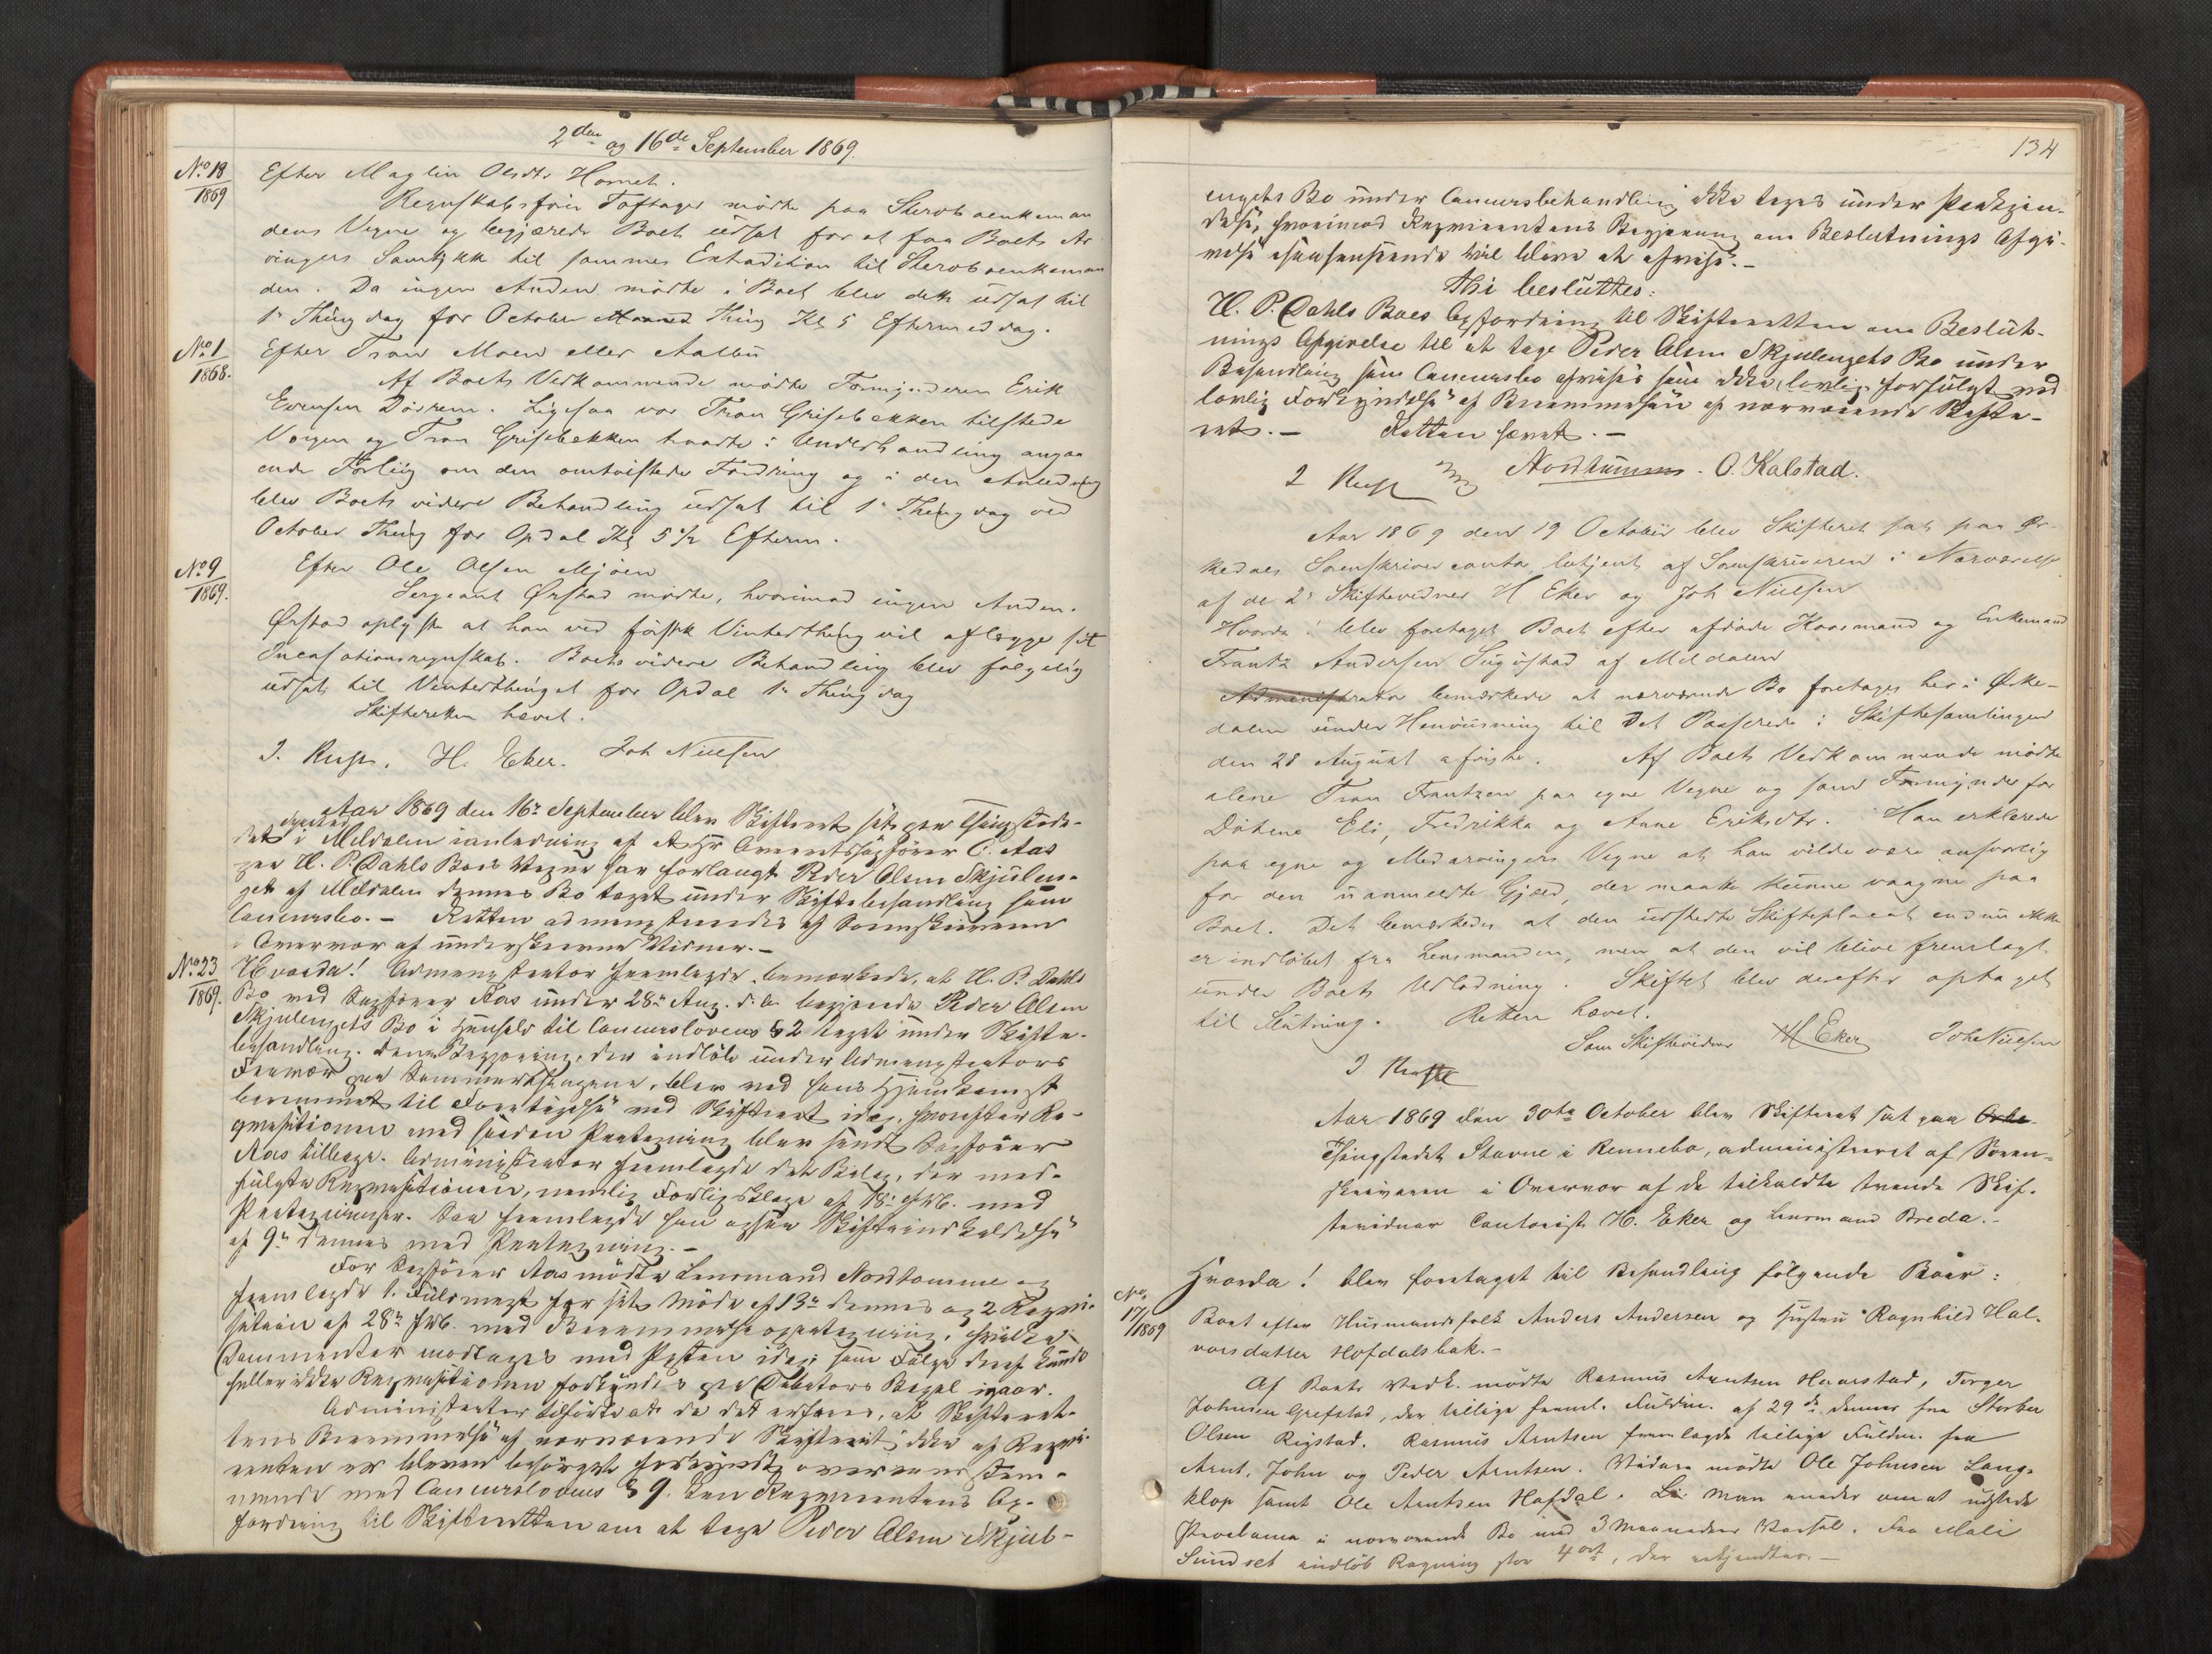 2den og 16de September 1869.
No 18
1869
Efter Maglin Olsdtr Hornet.
Regnskabsfører Toftager mødte paa Sterboenkeman
dens Vegne og begjærede Boet udsat for at faa Boets Ar
vingers Samtykke til sammes Extradition til Sterboenkeman
den. Da ingen Anden mødte i Boet blev dette udsat til
1ste Thingdag for October Maaned Thing Kl 5 Eftermiddag.
No 1
1868.
Efter Tron Moen eller Aalbu
Af Boets Vedkommende mødte Formynderen Erik
Evensen Dørrem. Ligesaa var Tron Grisebekken tilstede
Vergen og Tron Grisebekken traadte i Underhandling angaa
ende Forliig om den omtvistede Fordring og i den Anledning
blev Boets videre Behandling udsat til 1ste Thingdag ved
October Thing for Opdal Kl 5 1/2 Efterm.
No 9
1869.
Efter Ole Olsen Mjøen
Sergeant Ørstad mødte, hvorimod ingen Anden.
Ørstad oplyste at han ved første Vinterthing vil aflægge sit
Incasationsregnskab. Boets videre Behandling blev følgelig
udsat til Vinterthinget for Opdal 1ste Thingdag
Skifteretten hævet.
J. Rusti. H. Eker. Joh Nielsen
Aar 1869 den 16de September blev Skifteret sat paa Thingstedet
i Meldalen i anledning af at Hr Overretssagfører C. Aas
paa H. P. Dahls Boes Vegne har forlangt Peder Olsen Skjulen-
get af Meldalen dennes Bo taget under Skiftebehandling som
Concursbo. - Retten administreredes af Sorenskriveren
i Overvær af underskrevne Vidner. -
No 23
1869.
Hvorda! Administrator fremlagde, bemærkede, at H. P. Dahls
Bo ved Sagfører Aas under 28de Aug. d. A. begjærede Peder Olsen
Skjulengets Bo i Henhold til Concurslovens § 2 taget under Skifte-
behandling. Denne Begjæring, der indløb under Administrators
Fravær paa Sommerthingene, blev ved hans Hjemkomst
berammet til Foretagelse ved Skifteret idag, hvorefter Re-
qvisitionen med saadan Paategning blev sendt Sagfører
Aas tilbage. Administrator fremlagde det Bilag, der med-
fulgte Reqvisitionen, nemlig Forligsklage af 18de f. M. med
Paategninger. Saa fremlagde han ogsaa Skifteindkaldelse
af 9de dennes med Paategning. -
For Sagfører Aas mødte Lensmand Nordhomme og
fremlagde 1. Fuldmagt for sit Møde af 13de dennes og 2 Reqvi-
sition af 28de f. M. med Berammelsespaategning, hvilke
Documenter modtages med Posten idag; som Følge deraf kunde
heller ikke Reqvisitionen forkyndes paa Debitors Bopæl igaar.
Administrator tilførte at da det erfares, at Skifteret-
tens Berammelse af nærværende Skifteret ikke af Reqvi-
renten er bleven besørget forkyndt overensstem-
mende med Concurslovens § 9. kan Reqvirentens Op-
fordring til Skifteretten om at tage Peder Olsen Skjul-
134
engets Bo under Concursbehandling ikke tages under Paakjen-
delse, hvorimod Reqvirentens Begjæring om Beslutnings Afgi-
velse i saa henseende vil blive at afvise. -
Thi besluttes:
H. P. Dahls Boes Opfordring til Skifteretten om Beslut-
nings Afgivelse til at tage Peder Olsen Skjulengets Bo under
Behandling som Concursbo afvises som ikke lovlig forfulgt ved
lovlig Forkyndelse af Berammelsen af nærværende Skifte-
ret. - Retten hævet. -
J Rusti Nordhumme. O. Kalstad.
Aar 1869 den 19 October blev Skifteret sat paa Ør-
kedals Sorenskrivercontor, betjent af Sorenskriveren i Nærværelse
af de 2de Skiftevidner H Eker og Joh Nielsen
Hvorda! blev foretaget Boet efter afdøde Kaarmand og Enkemand
Frantz Andersen Sugustad af Meldalen
Administrator bemærkede at nærværende Bo foretages her i Ørke-
dalen under Henviisning til Det Passerede i Skiftesamlingen
den 28 August afvigte. Af Boets Vedkommende mødte
alene Tron Frantzen paa egne Vegne og som Formynder for
Døtrene Eli, Fredrikka og Anne Eriksdtr. Han erklærede
paa egne og Medarvingers Vegne at han vilde være ansvarlig
for den uanmeldte Gjæld, der maatte kunne vaagne paa
Boet. Det bemærkedes at den udstedte Skifteplacat endnu ikke
er indløbet fra Lensmanden, men at den vil blive fremlagt
under Boets Udlodning. Skiftet blev derefter optaget
til Slutning. Retten hævet.
J Rusti Som Skiftevidner H Eker Joh Nielsen
Aar 1869 den 30te October blev Skifteret sat paa Orke-
Thingstedet Stavne i Rennebo, administreret af Soren-
skriveren i Overvær af de tilkaldte tvende Skif-
tevidner Contorist H. Eker og Lensmand Breda. -
Hvorda! blev foretaget til Behandling følgende Boer:
No
17/1869
Boet efter Huusmandsfolk Anders Andersen og Hustru Ragnhild Hal-
vorsdatter Hofdalsbak. -
Af Boets Vedk. mødte Rasmus Arntsen Haarstad, Torger
Johnsen Grefstad, der tillige freml. Fuldm. af 29de dennes fra Storker
Olsen Rigstad. Rasmus Arntsen fremlagde tillige Fuldm. fra
Arnt, John og Peder Arntsen. Videre mødte Ole Johnsen Lang-
klop samt Ole Arntsen Hofdal. Man enedes om at udstede
Proclama i nærværende Bo med 3 Maaneders Varsel. Fra Mali
Sundset indløb Regning stor 4 ort, der erkjendtes. -